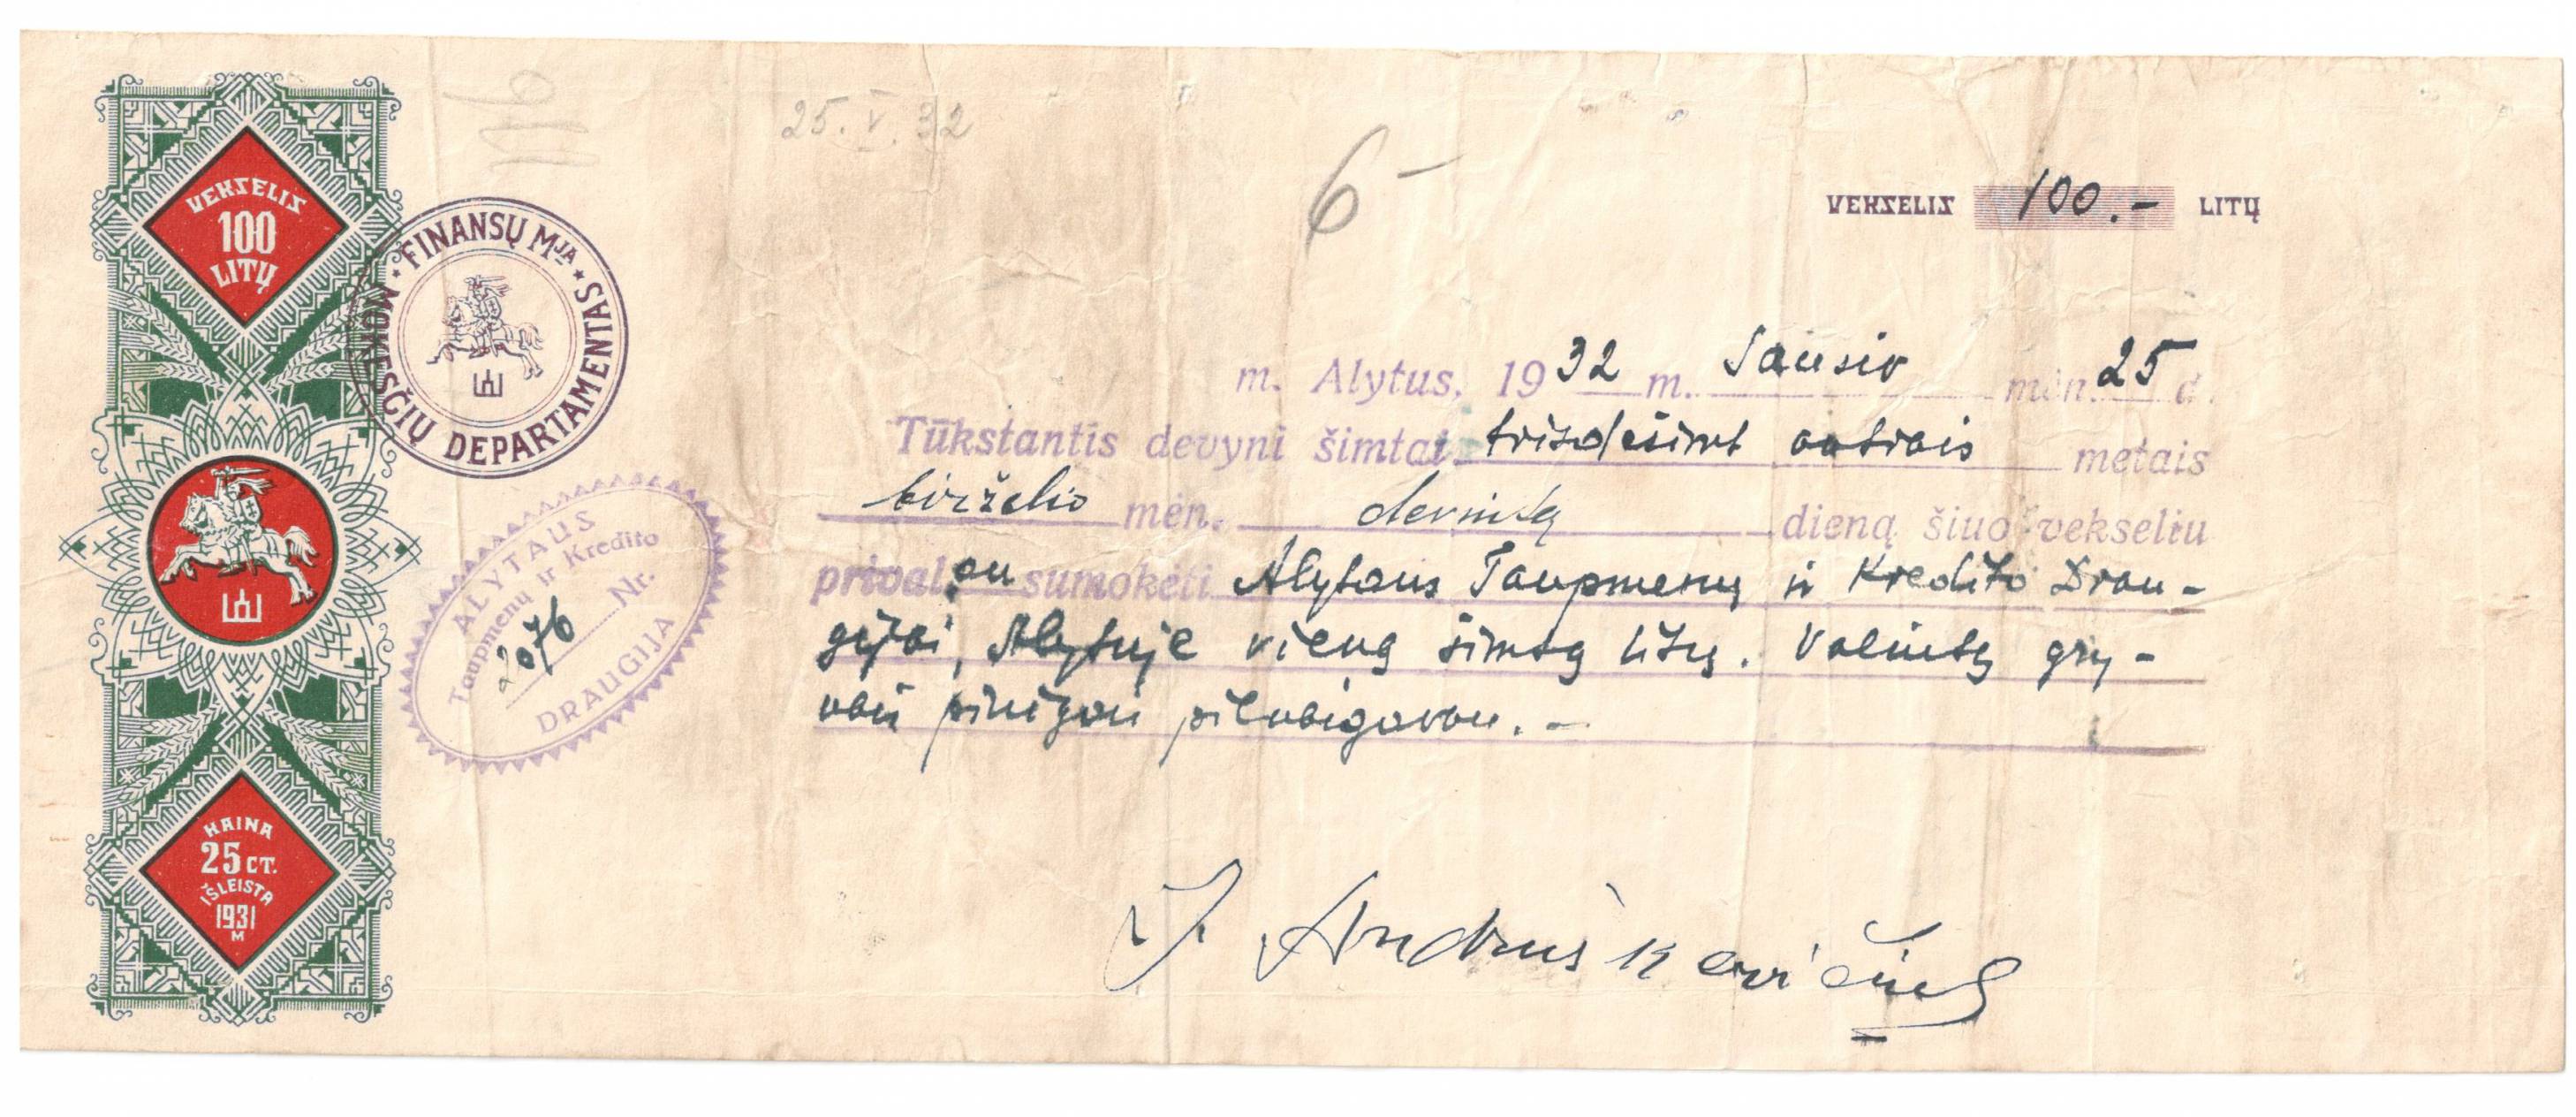 VEKSELIS
100
LITŲ
FINANSŲ MJA
MOKESČIŲ DEPARTAMENTAS
25. V. 32
6 –
VEKSELIS 100.- LITŲ
m. Alytus, 1932 m. Sausio mėn. 25 d.
Tūkstantis devyni šimtai trisdešimt antrais metais
birželio mėn. devintą dieną šiuo vekseliu
privalau sumokėti Alytaus Taupmenų ir Kredito Drau-
gijai, Alytuje vieną šimtą litų. Valiutą gry-
nais pinigais pilnai gavau. –
ALYTAUS
Taupmenų ir Kredito
2076 Nr.
DRAUGIJA
KAINA
25 CT.
IŠLEISTA
1931
M
J. Andriuškevičius